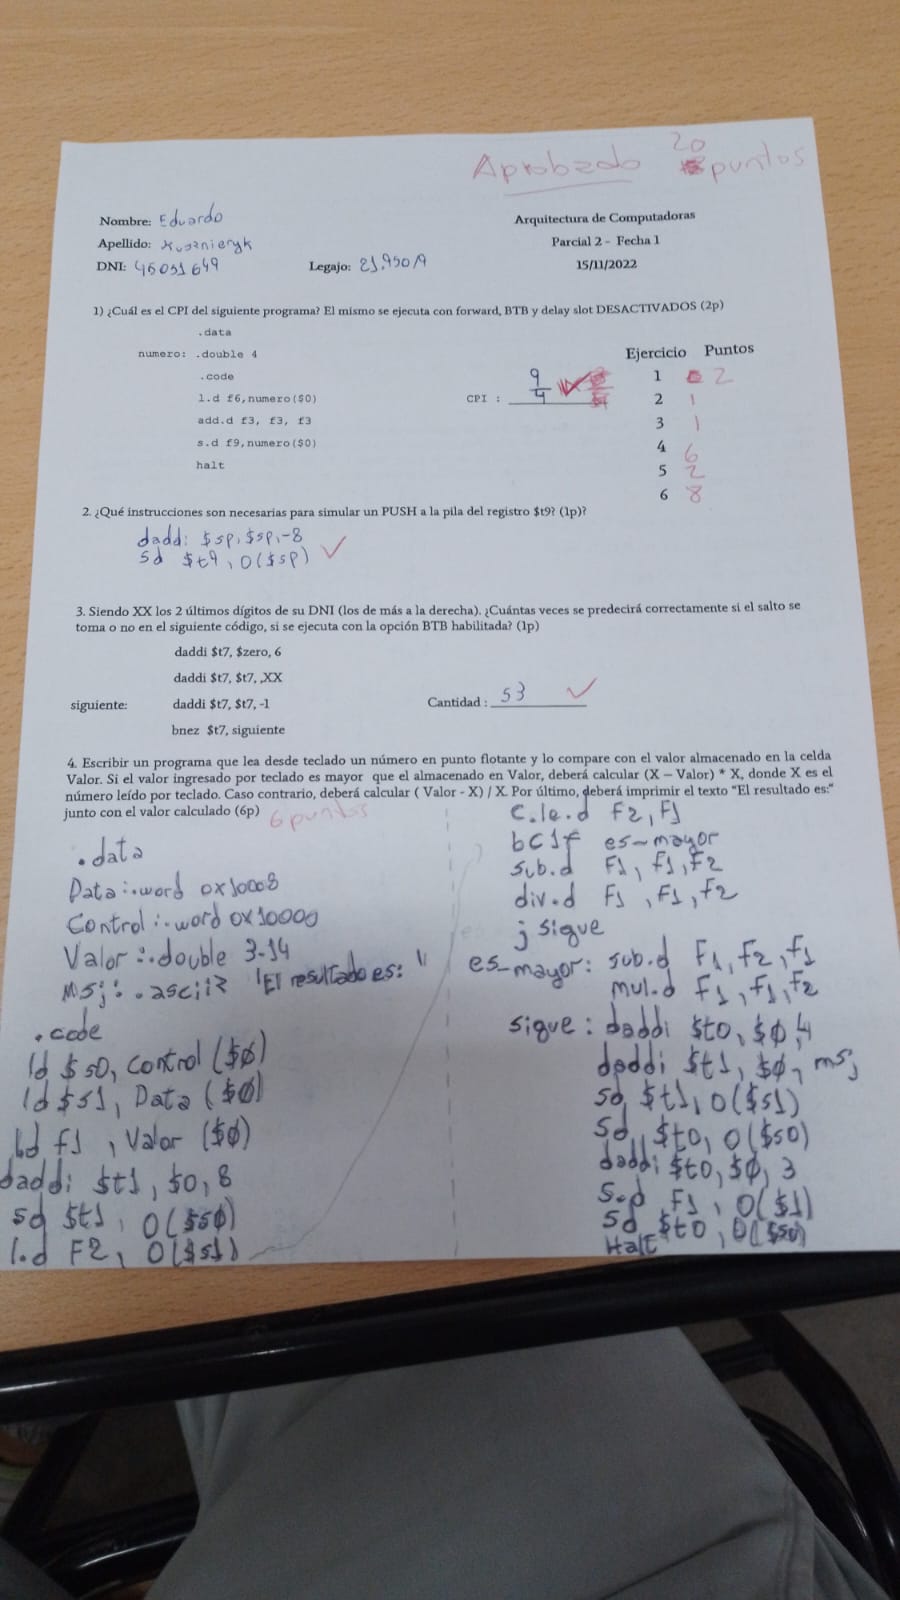 Aprobado 20 puntos
Nombre: Eduardo
Apellido:
DNI: 45051649 Legajo: 21.950/9
Arquitectura de Computadoras
Parcial 2 - Fecha 1
15/11/2022
1) ¿Cuál es el CPI del siguiente programa? El mismo se ejecuta con forward, BTB y delay slot DESACTIVADOS (2p)
.data
numero: .double 4
.code
l.d f6,numero($0)
add.d f3, f3, f3
s.d f9,numero($0)
halt
CPI : 9/4
Ejercicio Puntos
1 2
2 1
3 1
4 6
5 2
6 8
2. ¿Qué instrucciones son necesarias para simular un PUSH a la pila del registro $t9? (1p)?
daddi $sp, $sp, -8
sd $t9, 0($sp)
3. Siendo XX los 2 últimos dígitos de su DNI (los de más a la derecha). ¿Cuántas veces se predecirá correctamente si el salto se
toma o no en el siguiente código, si se ejecuta con la opción BTB habilitada? (1p)
daddi $t7, $zero, 6
daddi $t7, $t7, ,XX
siguiente: daddi $t7, $t7, -1
bnez $t7, siguiente
Cantidad : 53
4. Escribir un programa que lea desde teclado un número en punto flotante y lo compare con el valor almacenado en la celda
Valor. Si el valor ingresado por teclado es mayor que el almacenado en Valor, deberá calcular (X – Valor) * X, donde X es el
número leído por teclado. Caso contrario, deberá calcular ( Valor - X) / X. Por último, deberá imprimir el texto "El resultado es:"
junto con el valor calculado (6p) 6 puntos
.data
Data: .word 0x10008
Control: .word 0x10000
Valor: .double 3.14
Msj: .asciiz "El resultado es: "
.code
ld $s0, Control ($0)
ld $s1, Data ($0)
l.d f1, Valor ($0)
daddi $t1, $0, 8
sd $t1, 0($s0)
l.d F2, 0($s1)
c.le.d F2, F1
bc1f es-mayor
sub.d F1, F1, F2
div.d F1, F1, F2
j sigue
es_mayor: sub.d F1, F2, f1
mul.d F1, F1, F2
sigue: daddi $t0, $0, 4
daddi $t1, $0, msj
sd $t1, 0($s1)
sd $t0, 0($s0)
daddi $t0, $0, 3
s.d F1, 0($1)
sd $t0, 0($s0)
Halt